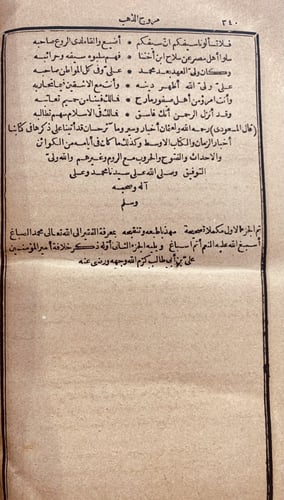 ٣٤٠ مروج الذهب
فلا تسألونا سيفكم ان سيفكم * أضيع وألقاه لدى الروع صاحبه
سلوا أهل مصر عن سلاح ابن أختنا * فهم سلبوه سيفه وحرائبه
وكان ولى العهد بعد محمد * على وفى كل المواطن صاحبه
على ولى الله أظهر دينه * وأنت مع الاشقين فيما تحاربه
وأنت امرؤ من أهل صفور مارح * فمالك فينا من حميم تعاتبه
وقد أنزل الرحمن أنك فاسق * فمالك فى الاسلام سهم تطالبه
(قال المسعودى) رحمه الله ولعثمان أخبار وسير وما آثر حسان قد أتينا على ذكرها فى كتابنا
أخبار الزمان والكتاب الاوسط وكذلك ما كان فى أيامه من الكوائن
والاحداث والفتوح والحروب مع الروم وغيرهم والله ولى
التوفيق وصلى الله على سيدنا محمد وعلى
آله وصحبه
وسلم
تم الجزء الاول مكملا تصحيحه مهذبا طبعه وتنقيحه بمعرفة الفقير الى الله تعالى محمد الصباغ
أسبغ الله عليه النعم أتم اسباغ ويليه الجزء الثانى أوله ذكر خلافة أمير المؤمنين
على بن أبى طالب كرم الله وجهه ورضى عنه